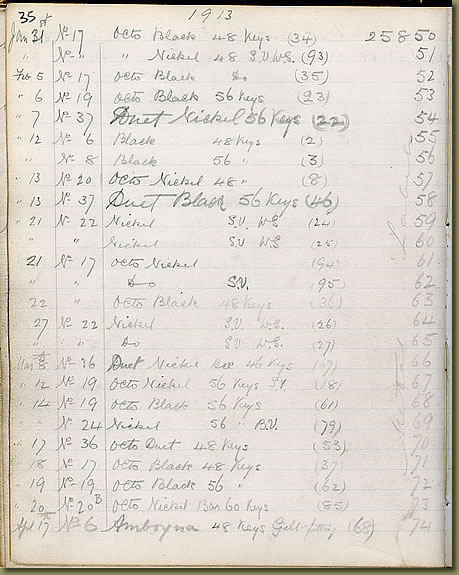 35 1913
Jan 31 No 17 Octo Black 48 Keys (34) 25850
" No " " Nickel 48 S.V. W.S. (93) 51
Feb 5 No 17 Octo Black Do (35) 52
" 6 No 19 Octo Black 56 Keys (23) 53
" 7 No 37 Duet Nickel 56 Keys (22) 54
" 12 No 6 Black 48 Keys (2) 55
" No 8 Black 56 " (3) 56
" 13 No 20 Octo Nickel 48 " (8) 57
" 13 No 37 Duet Black 56 Keys (46) 58
" 21 No 22 Nickel S.V. W.S. (24) 59
" " Nickel S.V. W.S. (25) 60
21 No 17 Octo Nickel (94) 61
" " Do S.V. (95) 62
22 " Octo Black 48 Keys (36) 63
27 No 22 Nickel S.V. W.S. (26) 64
" " Do S.V. W.S. (27) 65
Mar 8 No 36 Duet Nickel 46 Keys 66
" 12 No 19 Octo Nickel 56 Keys S.V. (18) 67
" 14 No 19 Octo Black 56 Keys (61) 68
No 24 Nickel 56 " B.V. (79) 69
" 17 No 36 Octo Duet 48 Keys (53) 70
" 18 No 17 Octo Black 48 Keys (37) 71
" 19 No 19 Octo Black 56 " (62) 72
" 20 No 20B Octo Nickel 60 Keys (85) 73
Apl 17 No 6 Amboyna 48 Keys (68) 74